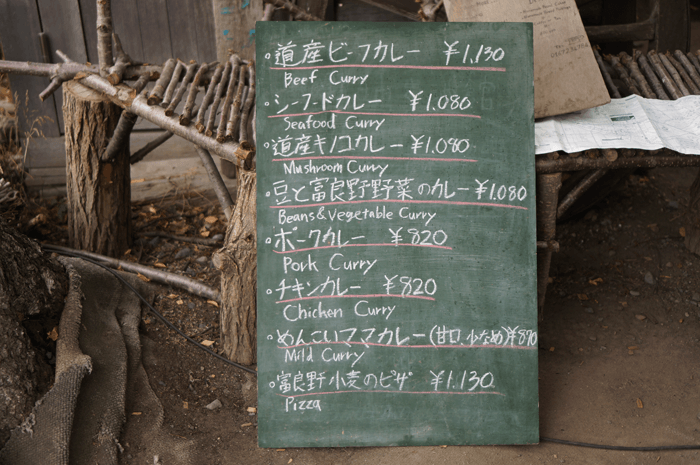 道産ビーフカレー ¥1,130
Beef Curry
シーフードカレー ¥1,080
Seafood Curry
道産キノコカレー ¥1,080
Mushroom Curry
豆と富良野野菜のカレー ¥1,080
Beans&Vegetable Curry
ポークカレー ¥820
Pork Curry
チキンカレー ¥820
Chicken Curry
めんこいママカレー(甘口、少なめ)¥890
Mild Curry
富良野小麦のピザ ¥1,130
Pizza